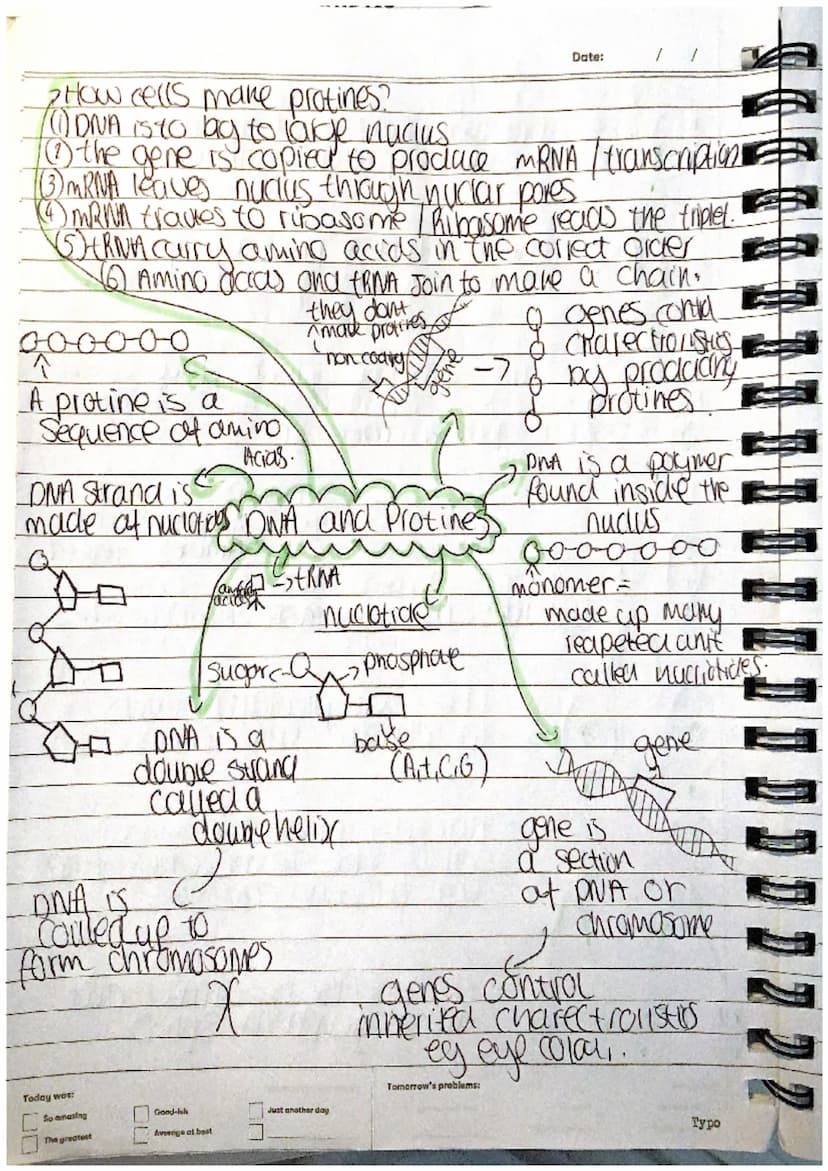 Date: / /
→How cells make protines?
(1) DNA is to big to large nuclus
(2) the gene is copied to produce mRNA / transcription
(3) mRNA leaves nuclus through nuclar pores
(4) mRNA travles to ribasome / Ribasome reads the triplet.
(5) tRNA carry amino acids in the correct order
(6) Amino acids and tRNA Join to make a chain.
they dont
^ make protines
non coding
gene
→
genes contol
charectrolistics
by producing
protines.
A protine is a
Sequence of amino
Acids.
DNA is a polymer
found inside the
nuclus
DNA Strand is
made of nuclotides
DNA and Protines
amino
acids
→tRNA
monomer=
made up many
reapeted unit
called nucliotides.
nuclotide
sugar
→phosphate
base
(A,t,C,G)
DNA is a
double strand
called a
double helix
gene
gene is
a section
of DNA or
chromosome
DNA is
coiled up to
form chromosomes
X
genes control
inherited charectrolistics
eg eye colour.
Today was:
So amazing
Good-ish
Just another day
The greatest
Average at best
Tomorrow's problems:
Typo